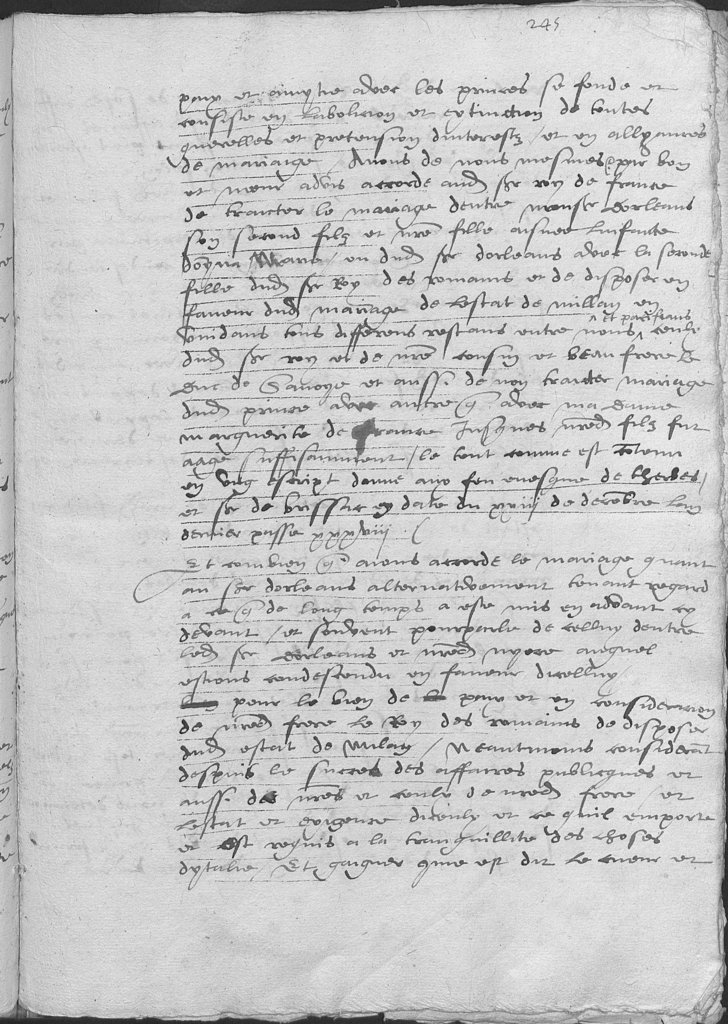 245
paix et amytie avec les princes se fonde et
consiste en l'abolicion et extinction de toutes
querelles et pretension d'interestz / et en allyances
de mariaige / Avons de nous mesmes & par bon
et meur advis accorde aud sr roy de france
de traicter le mariage dentre monsr dorleans
son second filz et nre fille aisnee linfante
donna Maria / ou dud sr dorleans avec la seconde
fille dud sr Roy des romains et de disposer en
faveur dud mariage de lestat de millan en
vuidans tous differens restans entre nous ^ et pacifians ceulx
dud sr roy et de nre cousin et beau frere le
duc de Savoye et aussi de non traicter mariage
dud prince avec autre q avec ma dame
marguerite de France Jusques nred filz fut
aage suffisamment / le tout comme est contenu
en ung escript donne aux feu evesque de therbes /
et sr de brissac en date du xxiiij de decembre lan
dernier passe xxxviij
Et combien q aions accorde le mariage quant
au sr dorleans alternativement tenant regard
a ce q de long temps a este mis en advant cy
devant / et souvent pourparle de celluy dentre
led sr dorleans et nred nyece auquel
estions condescendu en faveur dicelluy
pour le bien de paix et en consideracion
de nred frere le Roy des romains de disposer
dud estat de milan / Neantmoins considerant
despuis le succes des affaires publicques et
aussi des nres et ceulx de nred frere / et
lestat et exigence diceulx et ce quil emporte
et est requis a la tranquillite des choses
dytalie / Et gaigner que est dit le cueur et